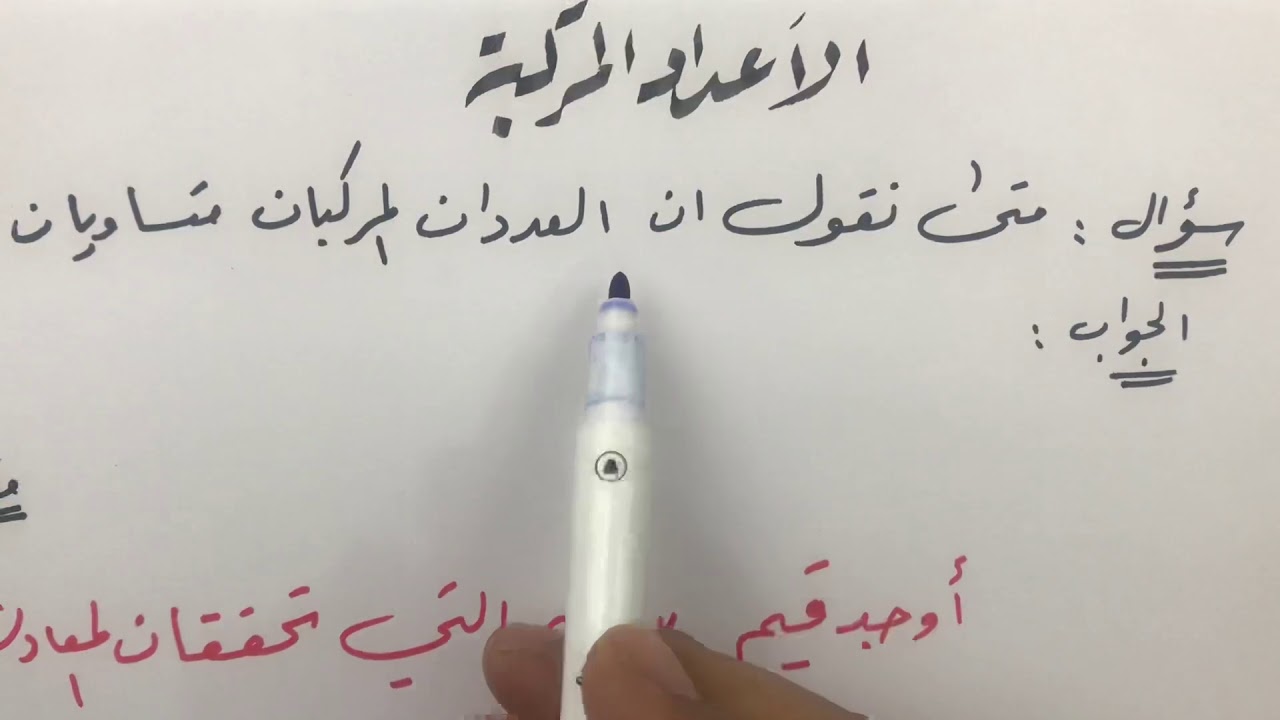 الأعداد المركبة
سؤال : متى نقول ان العددان المركبان متساويان
الجواب :
أوجد قيم التي تحققان